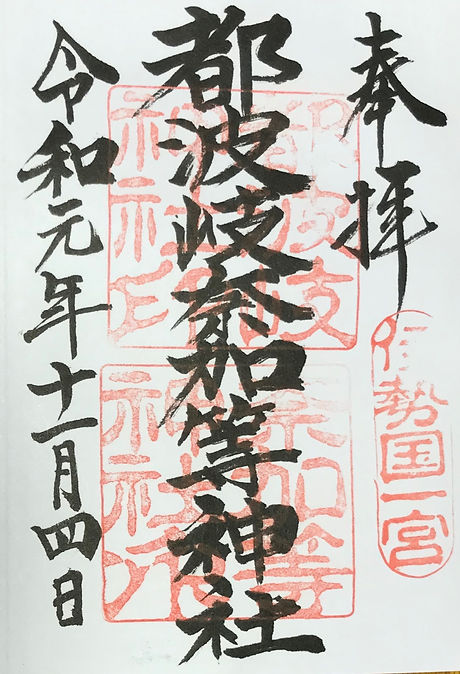 奉拝
伊勢国一宮
都波岐奈加等神社
都波岐神社印
奈加等神社印
令和元年十一月四日